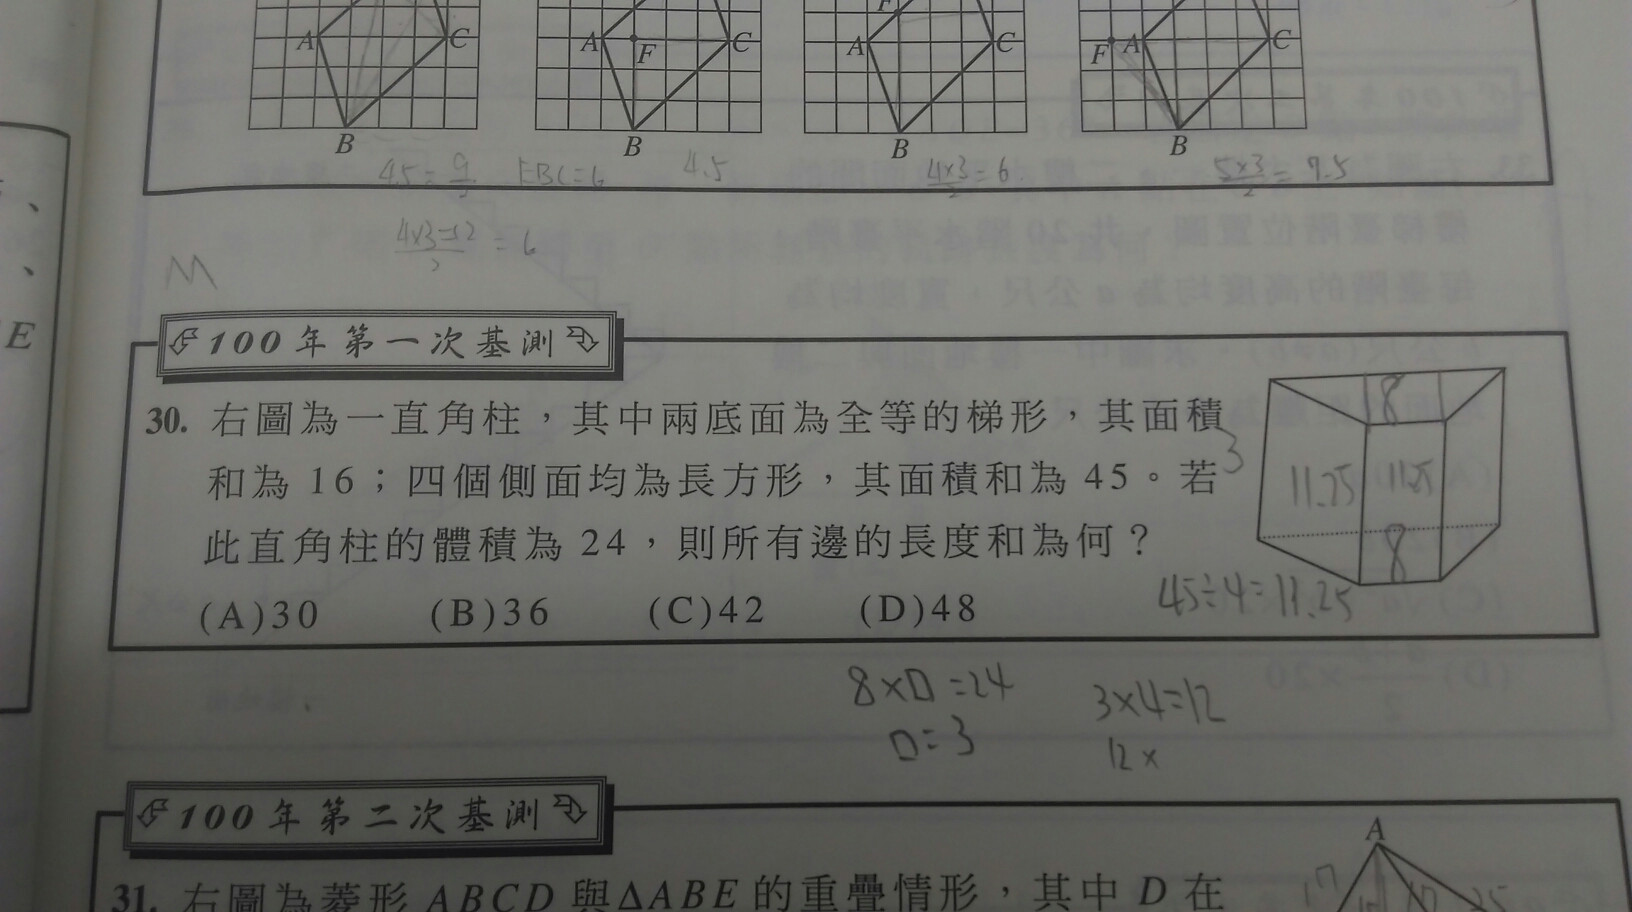 A C A F C F A C F A C
B B B B
4.5 = 9/2 EBC=6 4.5 4×3/2 = 6 5×3/2 = 7.5
4×3=12/2 = 6
M
、
、
E
100年第一次基測
30. 右圖為一直角柱，其中兩底面為全等的梯形，其面積
和為16；四個側面均為長方形，其面積和為45。若
此直角柱的體積為24，則所有邊的長度和為何？
(A)30 (B)36 (C)42 (D)48
8
3
11.25 11.25
8
45÷4=11.25
8×口=24
口=3
3×4=12
12×
100年第二次基測
A
31. 右圖為菱形ABCD與ΔABE的重疊情形，其中D在
17 25